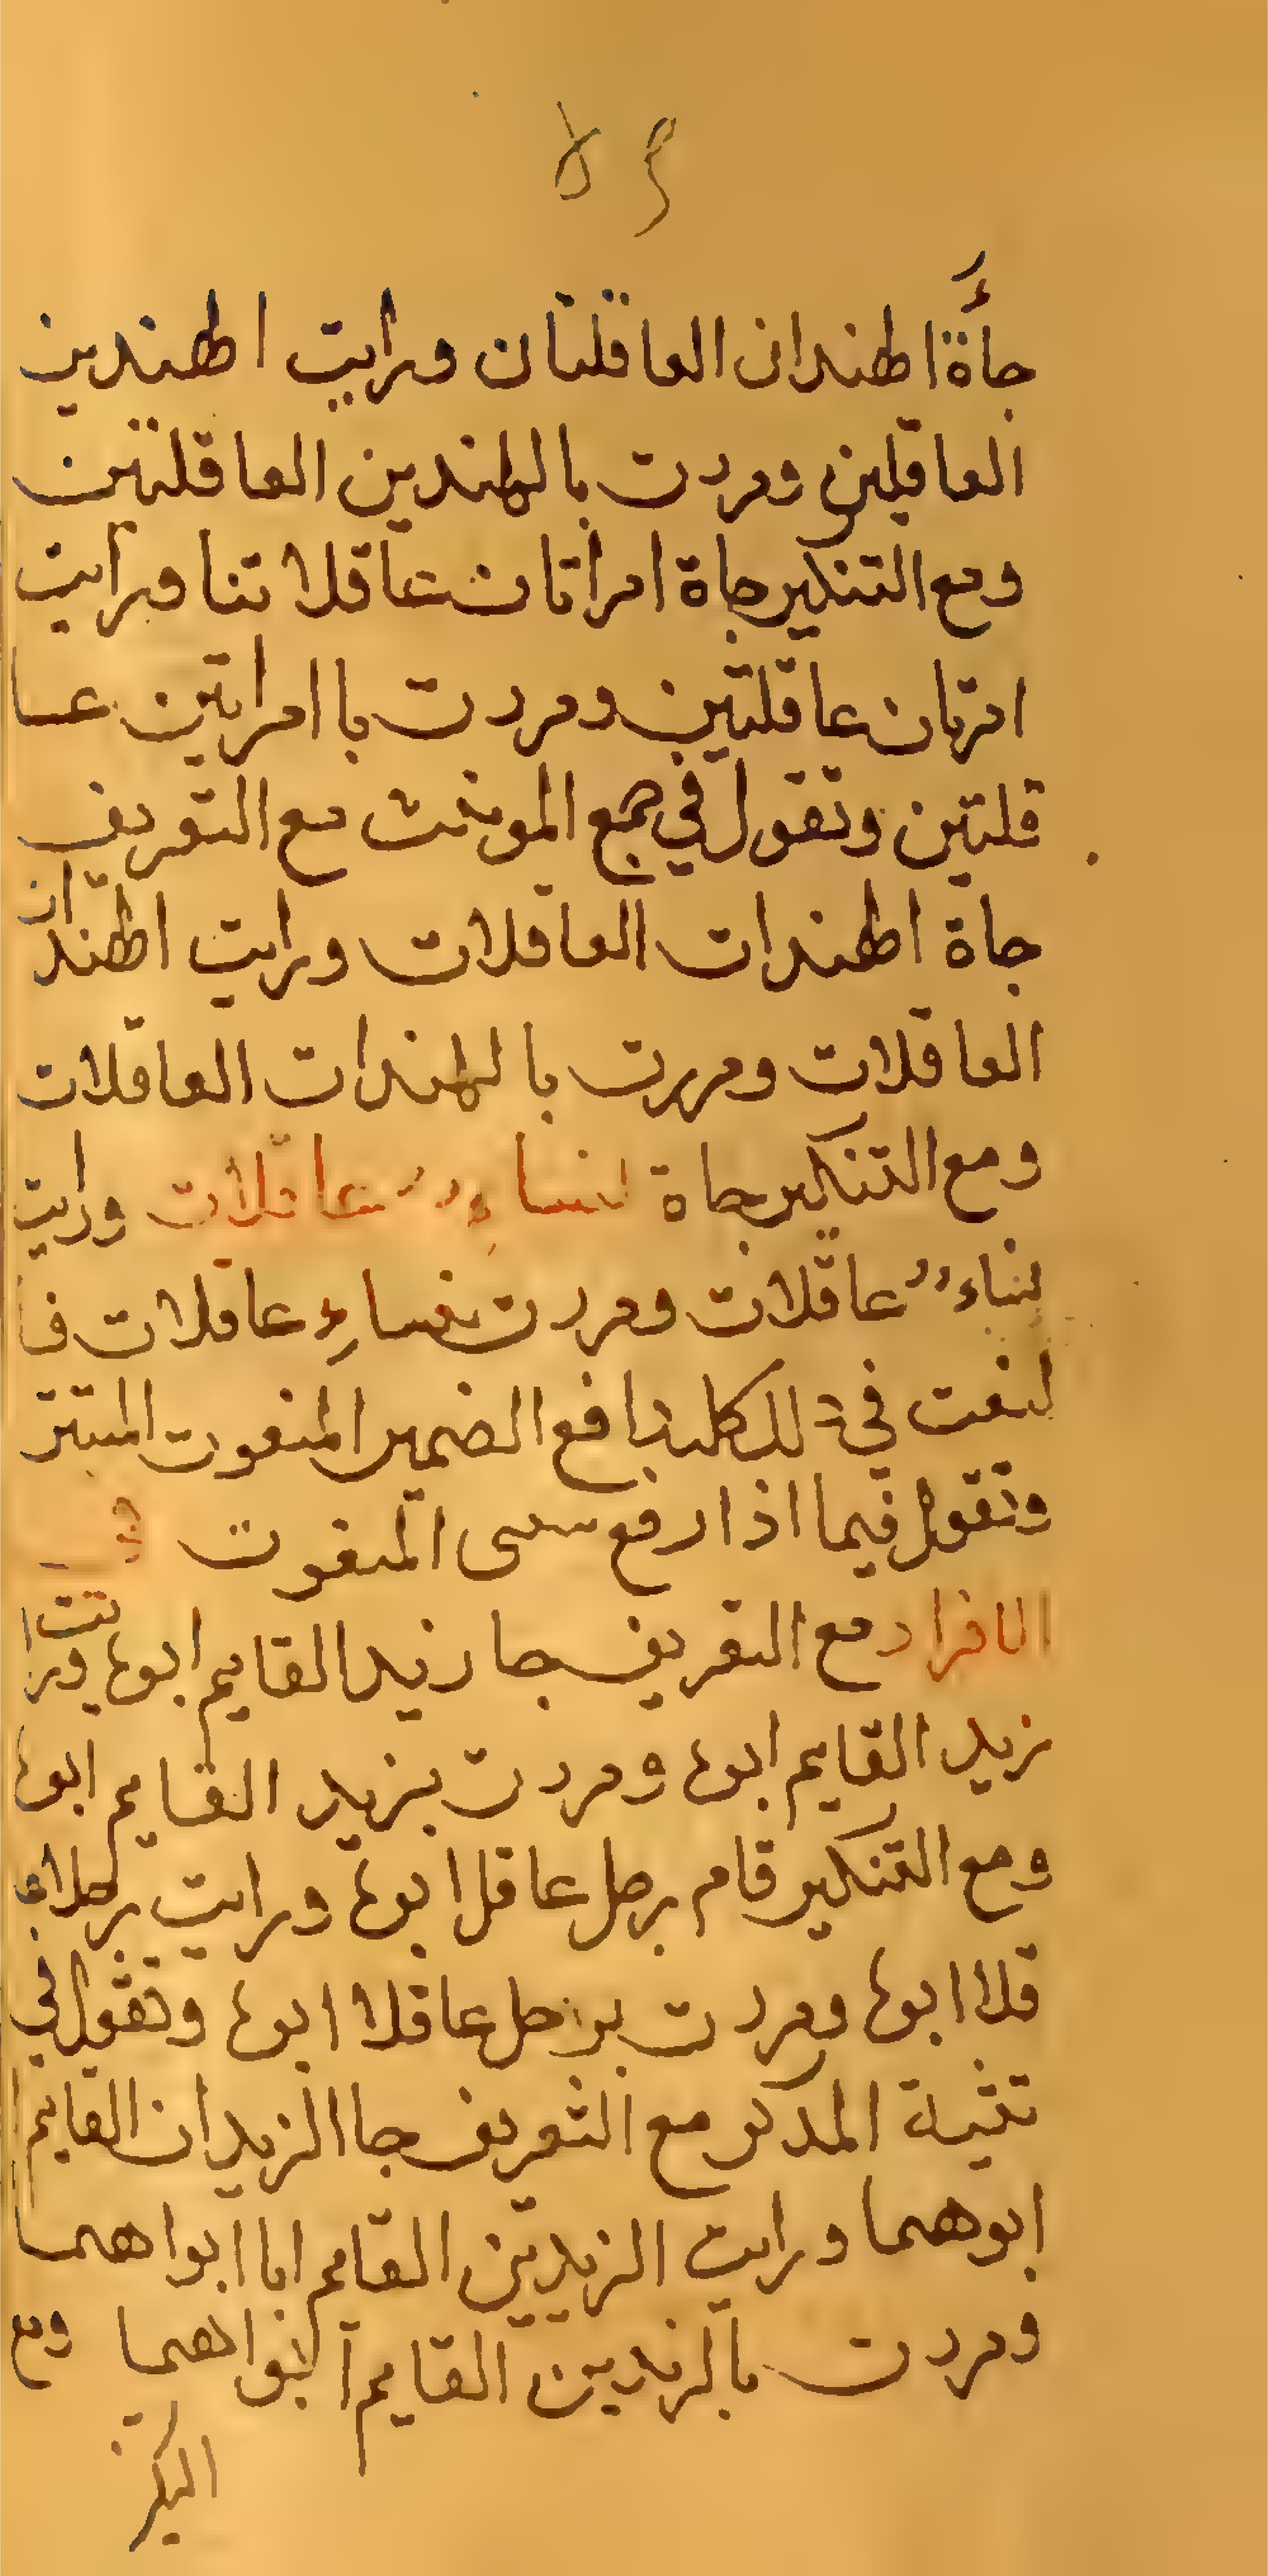 جاءة الهندان العاقلتان ورايت الهندين
العاقلين ومردت بالهندين العاقلتين
ومع التنكير جاة امراتان عاقلاتنا ورايت
امرتان عاقلتين ومردت باامراتين عا
قلتين وتقول في جمع المونث مع التعريف
جاة الهندات العاقلات ورايت الهندات
العاقلات ومررت بالهندات العاقلات
ومع التنكير جاة نساء عاقلات ورايت
نساء عاقلات ومردت بنساء عاقلات فا
لنعت في ذلك كله رافع الضمير المنعوت المستتر
وتقول فيما اذا رفع سببى المنعوت في
الافراد مع التعريف جا زيد القايم ابوه ورايت
زيد القايم ابوه ومردت بزيد القايم ابوه
ومع التنكير قام رجل عاقل ابوه ورايت رجلا عا
قلا ابوه ومردت برجل عاقلا ابوه وتقول في
تثنية المذكر مع التعريف جا الزيدان القايم
ابوهما ورايت الزيدين القايم ابواهما
ومردت بالزيدين القايم ابواهما ومع